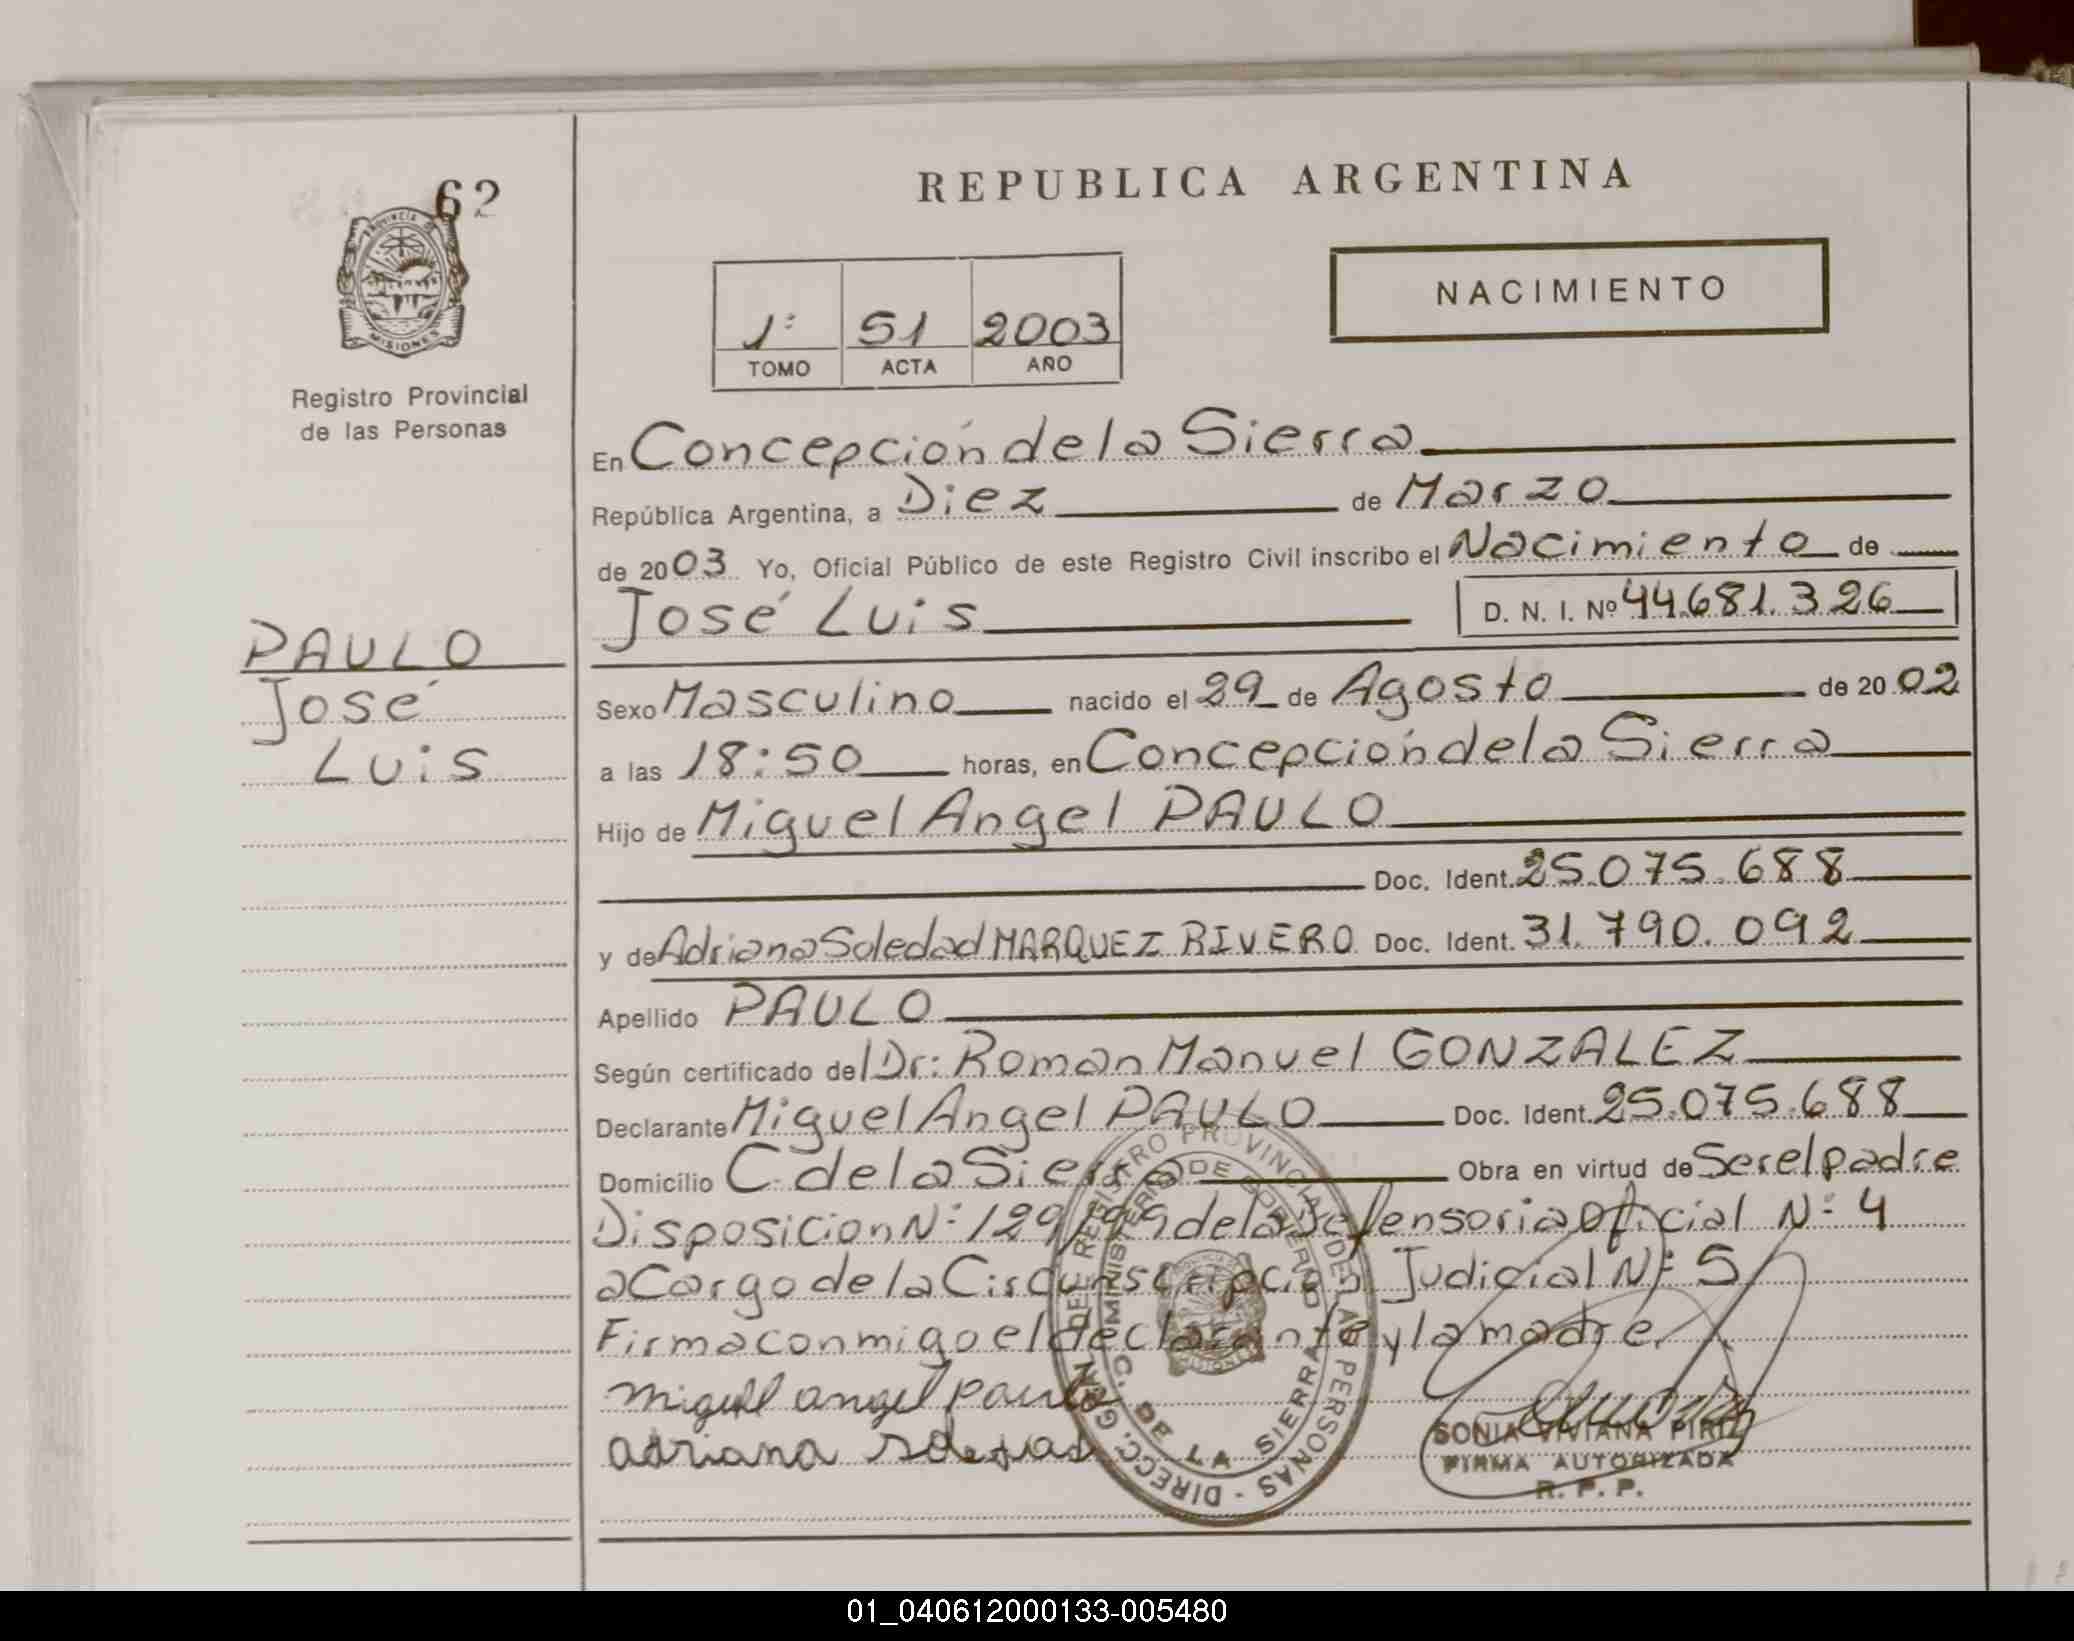 62
PROVINCIA DE
MISIONES
Registro Provincial
de las Personas
PAULO
José
Luis
REPUBLICA ARGENTINA
1º 51 2003
TOMO ACTA AÑO
NACIMIENTO
En Concepción de la Sierra
República Argentina, a Diez de Marzo
de 2003 Yo, Oficial Público de este Registro Civil inscribo el Nacimiento de
José Luis D. N. I. Nº 44.681.326
Sexo Masculino nacido el 29 de Agosto de 2002
a las 18:50 horas, en Concepción de la Sierra
Hijo de Miguel Angel PAULO
Doc. Ident. 25.075.688
y de Adriana Soledad MARQUEZ RIVERO Doc. Ident. 31.790.092
Apellido PAULO
Según certificado del Dr: Roman Manuel GONZALEZ
Declarante Miguel Angel PAULO Doc. Ident. 25.075.688
Domicilio C. de la Sierra Obra en virtud de Ser el padre
Disposicion Nº 129/99 de la Defensoria Oficial Nº 4
a Cargo de la Circunscripción Judicial Nº 5
Firma conmigo el declarante y la madre.
miguel angel paulo
adriana soledad
DIRECC. GRAL. DEL REGISTRO PROVINCIAL DE LAS PERSONAS -
MINISTERIO DE GOBIERNO
C. DE LA SIERRA
MISIONES
SONIA VIVIANA PIRIZ
FIRMA AUTORIZADA
R. P. P.
01_040612000133-005480